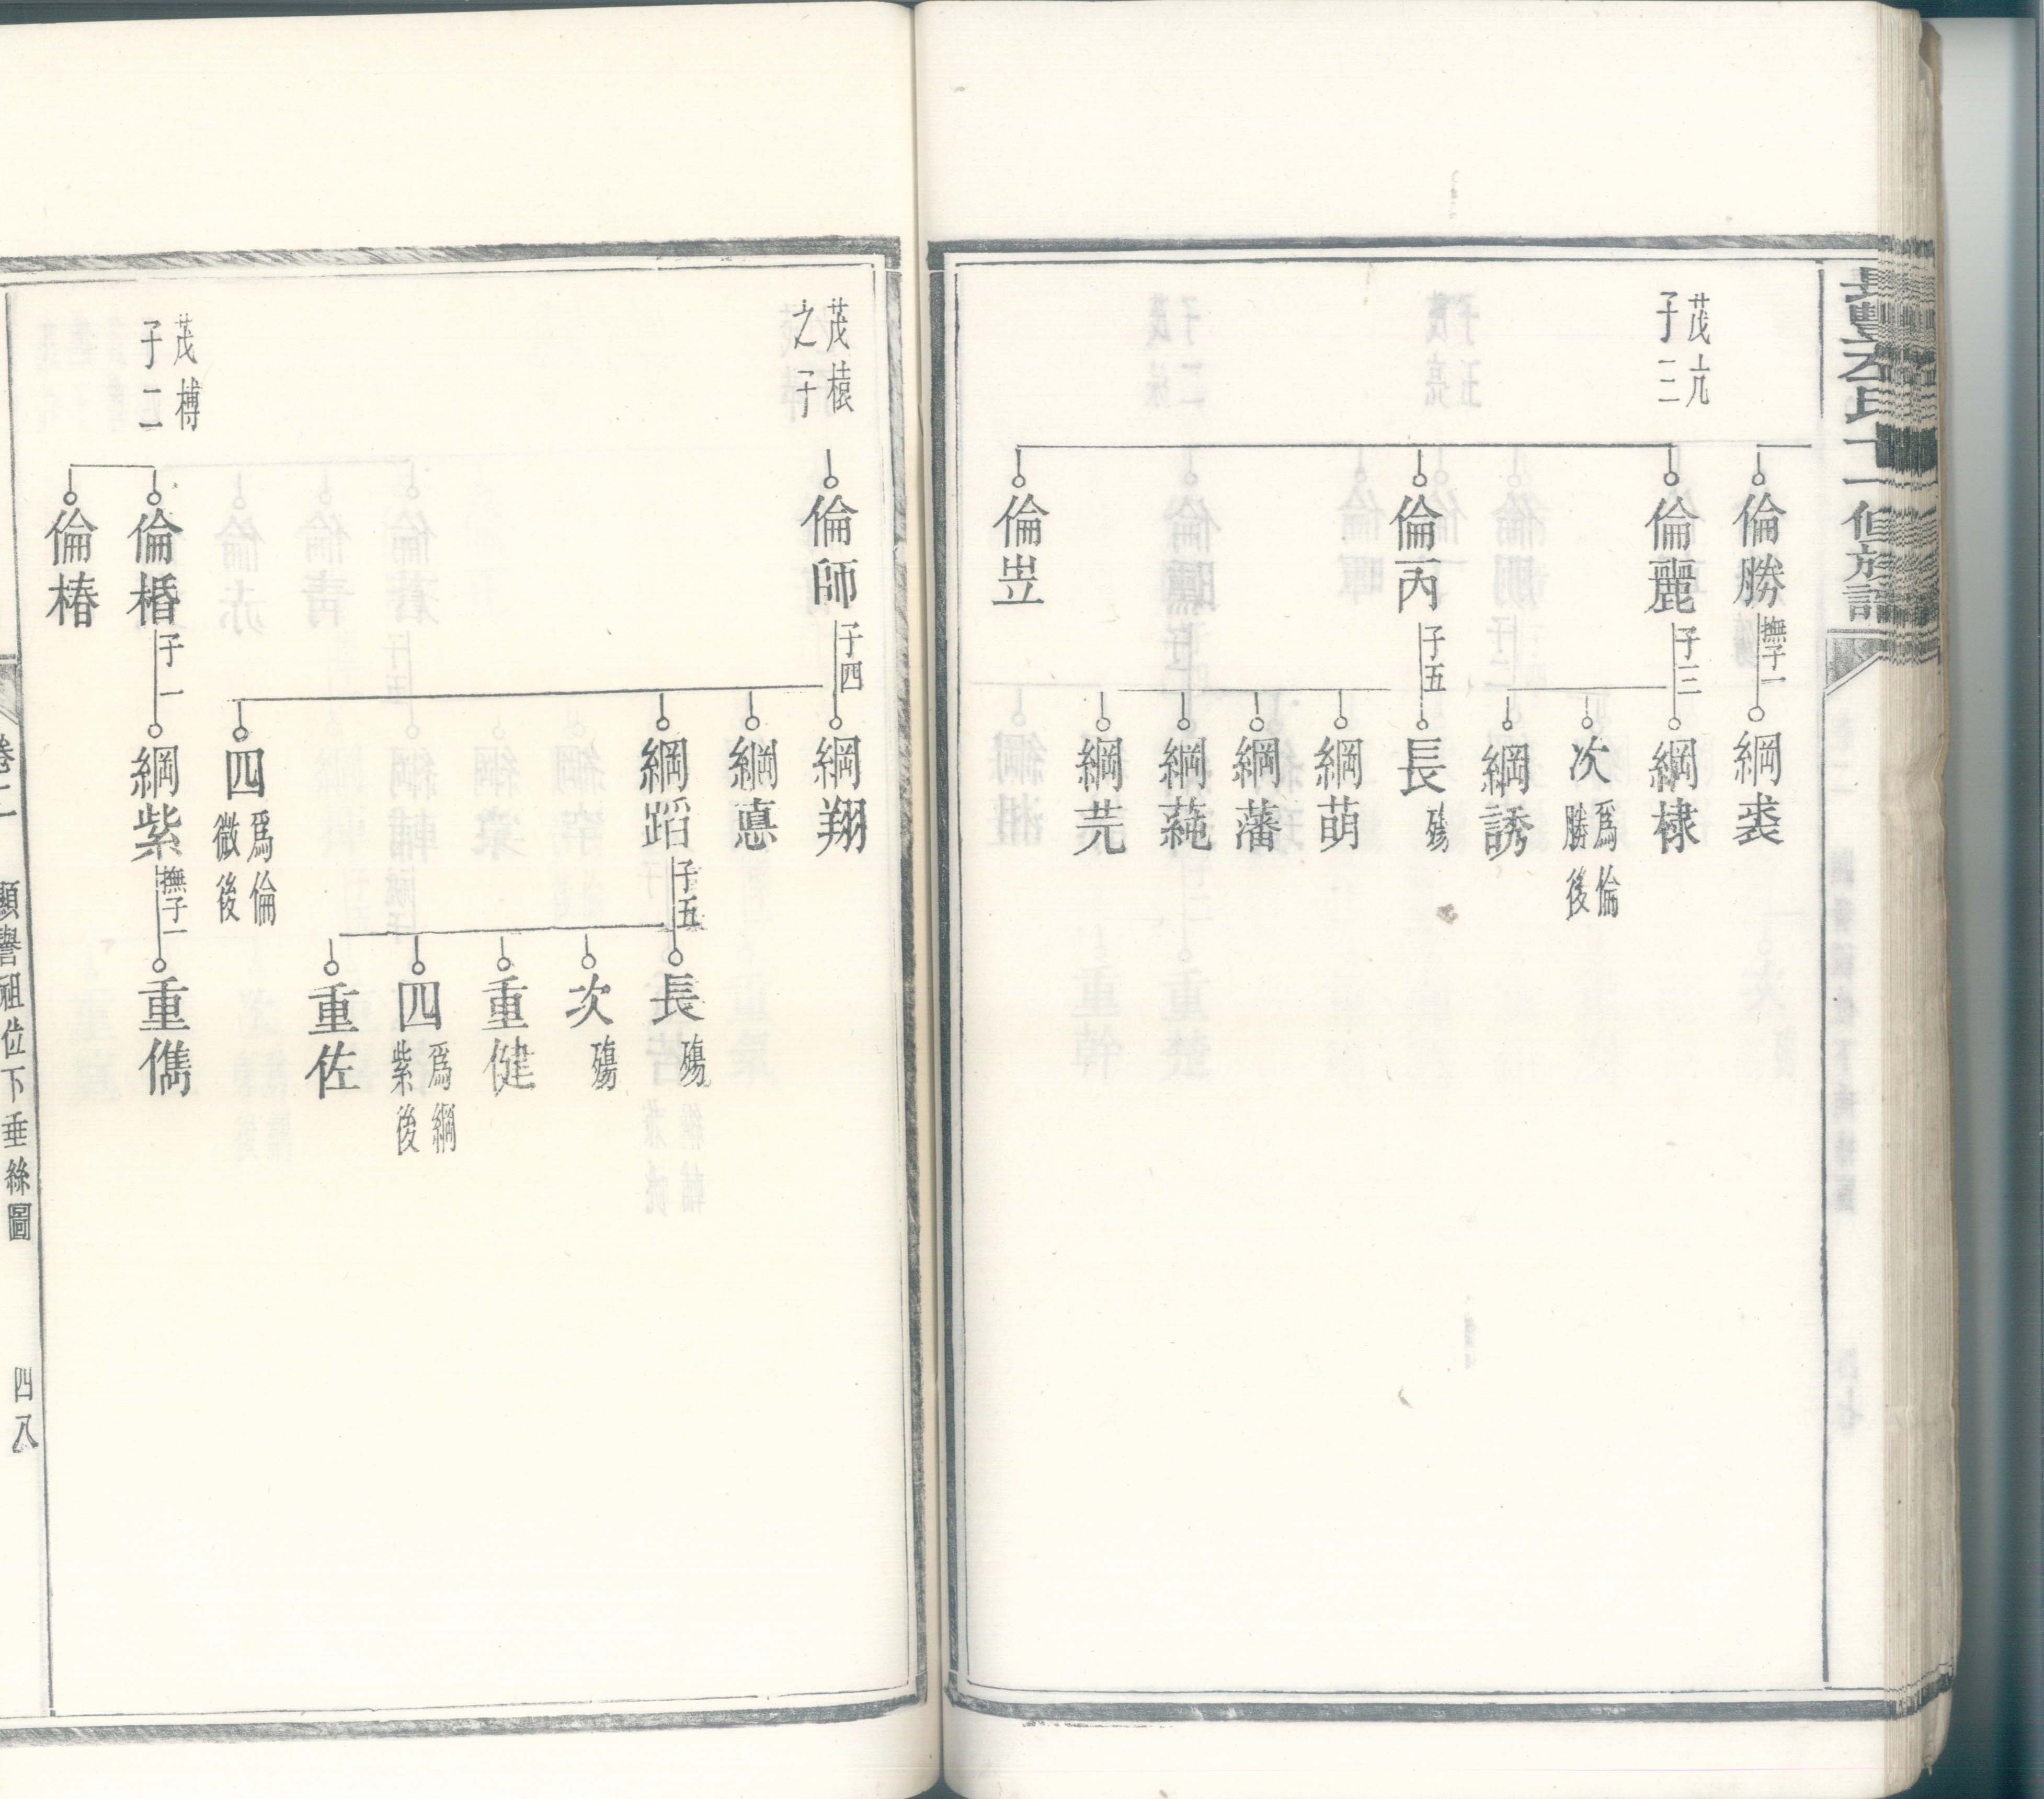 長豐左氏十一修族譜
倫勝
撫子一
綱裘
茂亢
子三
倫麗
子三
綱棣
次
爲倫
勝後
綱誘
倫丙
子五
長
殤
綱萌
綱藩
綱蒓
綱芫
倫岦
茂榬
之子
倫師
子四
綱翔
綱悳
綱蹈
子五
長
殤
次
殤
重健
四
爲綱
紫後
重佐
四
爲倫
微後
茂榑
子二
倫楯
子一
綱紫
撫子一
重儁
倫椿
卷二
顯譽祖位下垂絲圖
四八